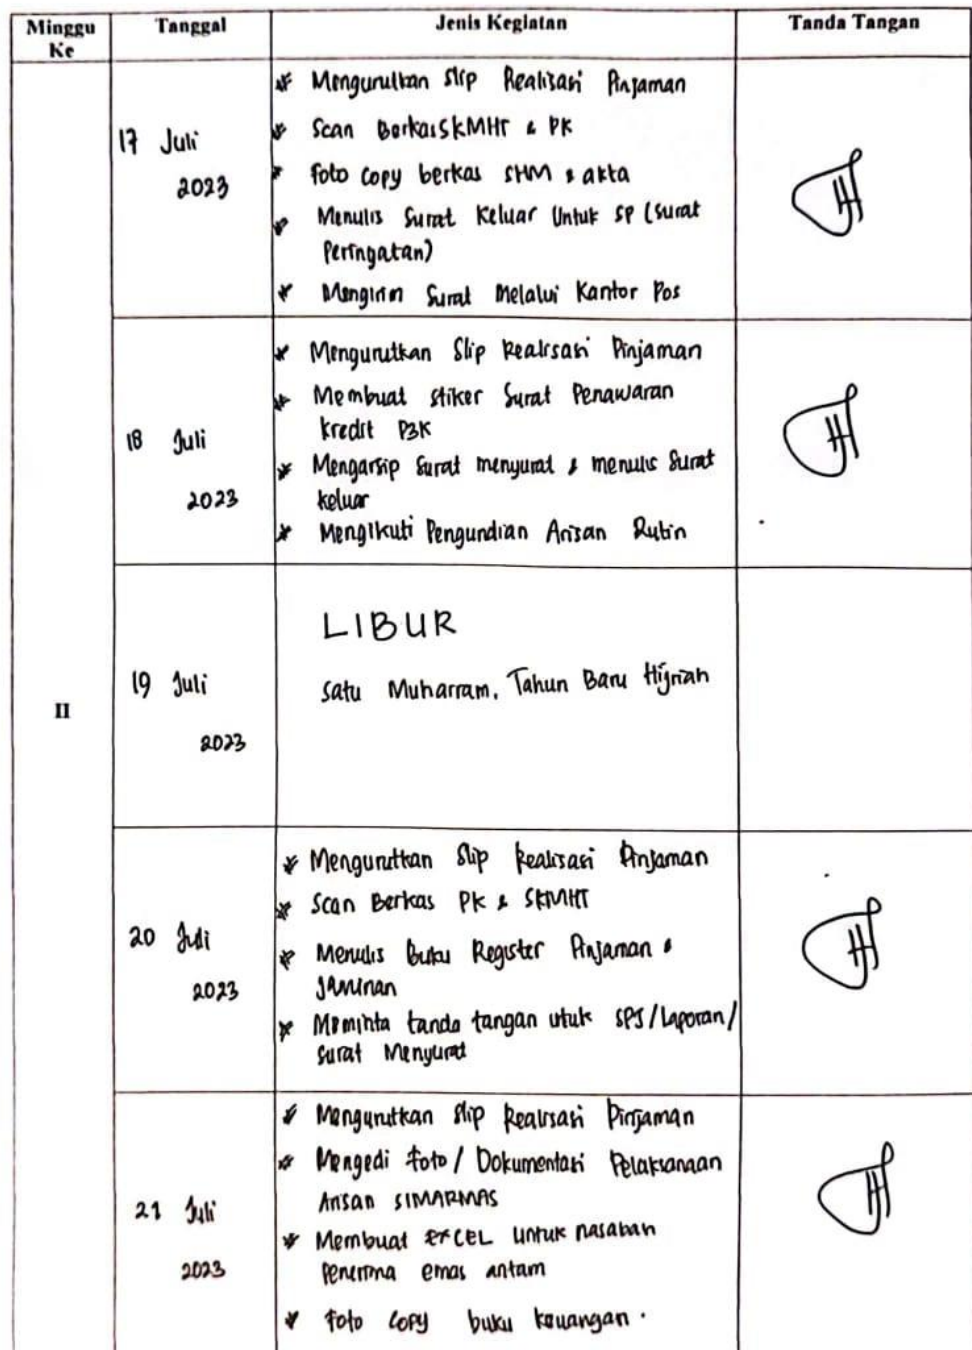 Minggu Ke
Tanggal
Jenis Kegiatan
Tanda Tangan
II
17 Juli
2023
* Mengurutkan Slip Realisasi Pinjaman
* Scan Berkas SKMHT & PK
* Foto Copy berkas SHM & akta
* Menulis Surat Keluar Untuk SP (Surat
Peringatan)
* Mengirim Surat Melalui Kantor Pos
18 Juli
2023
* Mengurutkan Slip Realisasi Pinjaman
* Membuat stiker Surat Penawaran
kredit P3K
* Mengarsip surat menyurat & menulis Surat
keluar
* Mengikuti Pengundian Arisan Rutin
19 Juli
2023
LIBUR
Satu Muharram, Tahun Baru Hijriah
20 Juli
2023
* Mengurutkan Slip Realisasi Pinjaman
* Scan Berkas PK & SKMHT
* Menulis buku Register Pinjaman &
Jaminan
* Meminta tanda tangan utuk SPJ/Laporan/
Surat Menyurat
21 Juli
2023
* Mengurutkan Slip Realisasi Pinjaman
* Mengedi foto / Dokumentasi Pelaksanaan
Arisan SIMARMAS
* Membuat EXCEL untuk nasabah
penerima emas antam
* Foto Copy buku keuangan.